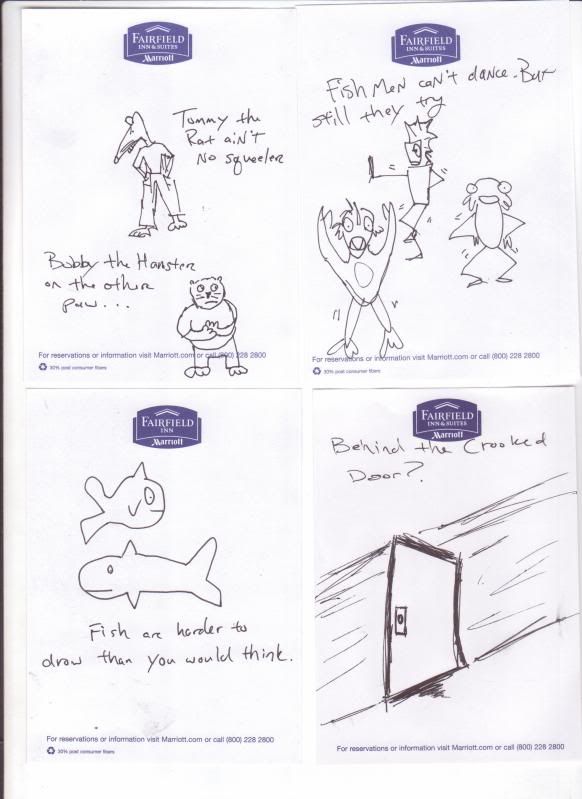 FAIRFIELD
INN & SUITES
Marriott
Tommy the
Rat ain't
No squeeler
Bobby the Hamster
on the other
paw...
For reservations or information visit Marriott.com or call (800) 228 2800
30% post consumer fibers
FAIRFIELD
INN & SUITES
Marriott
Fish Men can't dance. But
still they try
For reservations or information visit Marriott.com or call (800) 228 2800
30% post consumer fibers
FAIRFIELD
INN
Marriott
Fish are harder to
draw than you would think.
For reservations or information visit Marriott.com or call (800) 228 2800
30% post consumer fibers
FAIRFIELD
INN & SUITES
Marriott
Behind the Crooked
Door?
For reservations or information visit Marriott.com or call (800) 228 2800